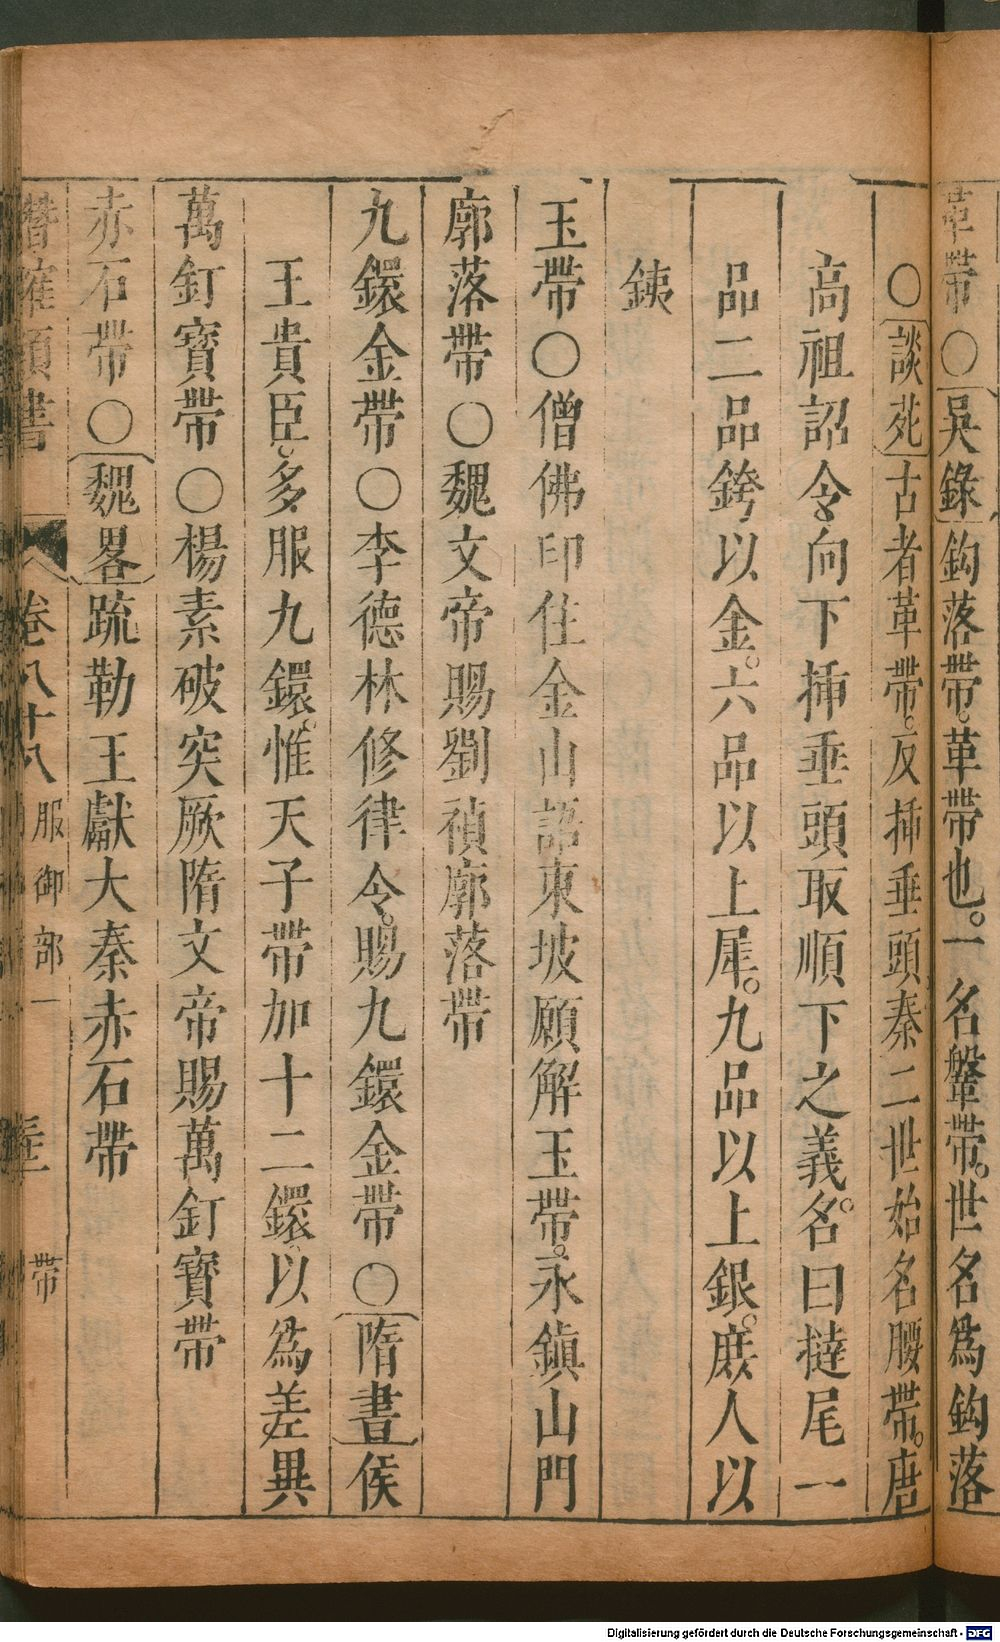 革帶○吳錄鈎落帶。革帶也。一名鞶帶。世名為鈎落
○談苑古者革帶。反揷垂頭秦二世始名腰帶。唐
高祖詔令向下揷垂頭取順下之義。名曰撻尾一
品二品銙以金。六品以上犀。九品以上銀。庶人以
銕
玉帶○僧佛印住金山語東坡願解玉帶。永鎭山門
廓落帶○魏文帝賜劉禎廓落帶
九鐶金帶○李德林修律令。賜九鐶金帶○隋書侯
王貴臣多服九鐶。惟天子帶加十二鐶。以為差異
萬釘寳帶○楊素破突厥隋文帝賜萬釘寳帶
赤石帶○魏畧疏勒王獻大秦赤石帶
潛確類書 卷八十八 服御部一 帶
Digitalisierung gefördert durch die Deutsche Forschungsgemeinschaft - DFG